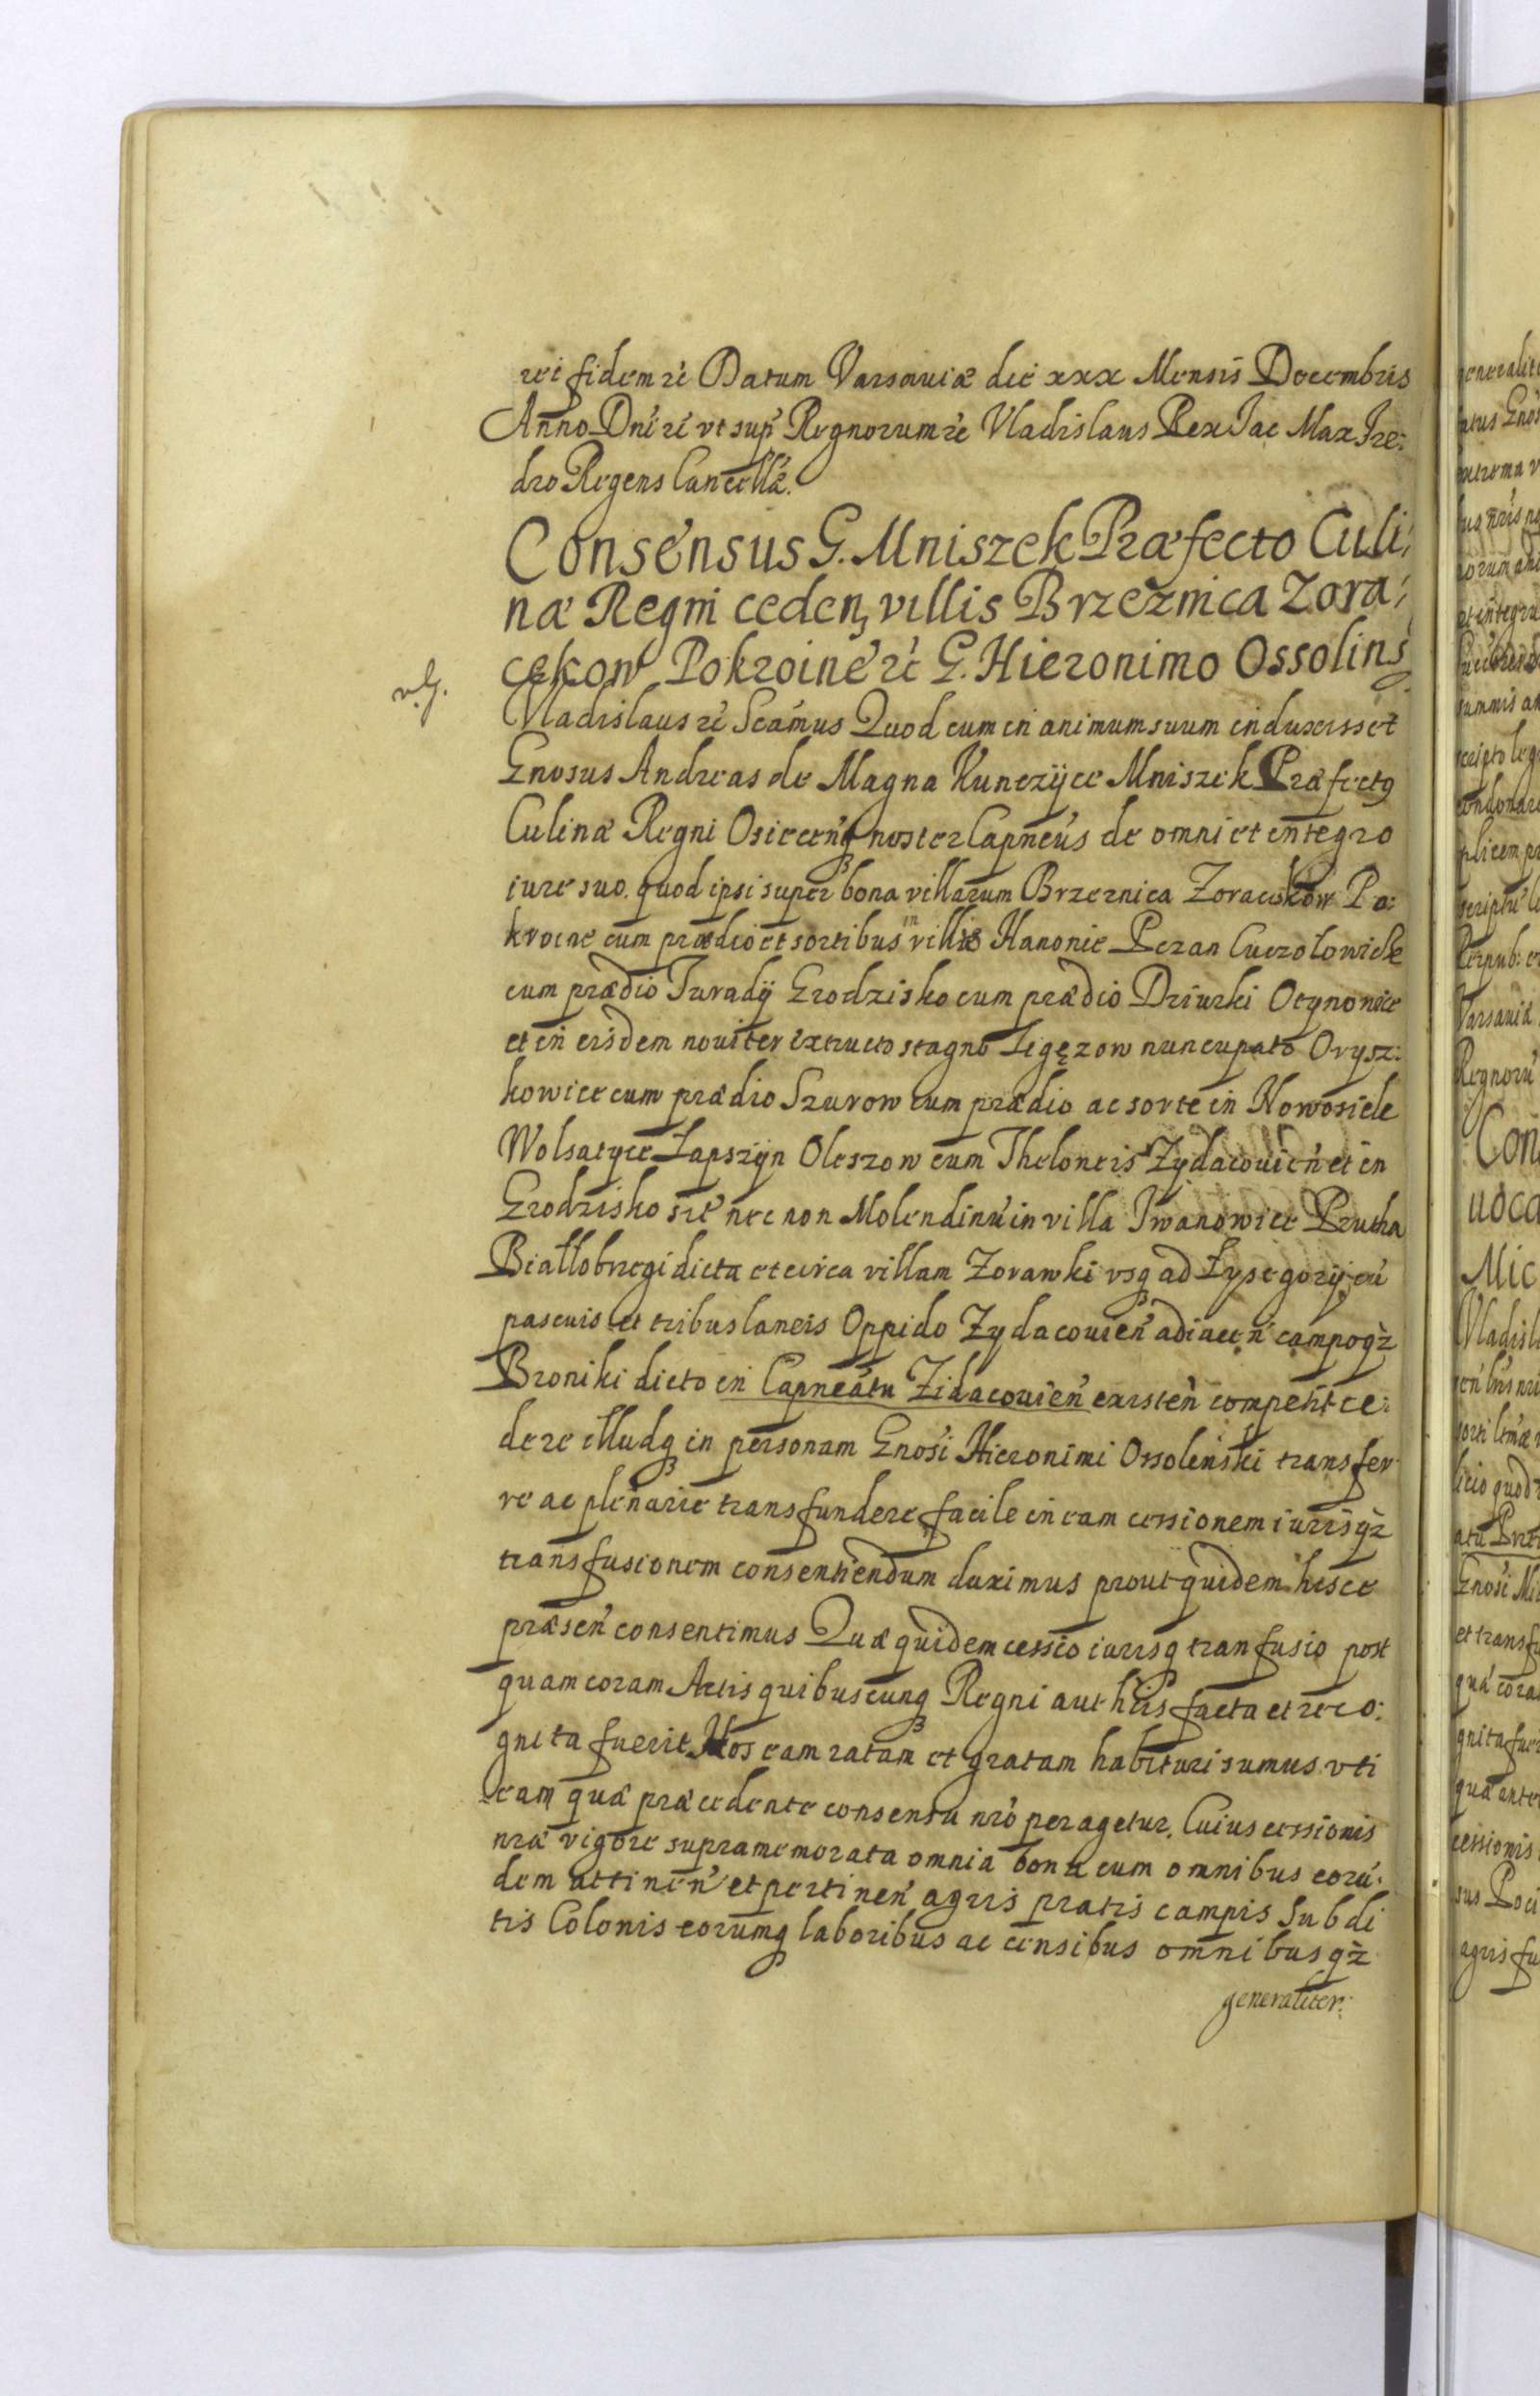 rei fidem ꝛc Datum Varsauiæ die xxx Mensis Decembris
Anno Dni ꝛc vt supͬ Regnorum ꝛc Vladislaus Rex Jac Max Fre:
dro Regens Cancellæ.
Consensus G. Mniszek Præfecto Culi,
næ Regni ceden, villis Brzeznica Zora,
cekow Pokroine ꝛc G. Hieronimo Ossolins
v. G.
Vladislaus ꝛc Scámus Quod cum in animum suum induxisset
Gnosus Andreas de Magna Kunczyce Mniszek Præfectꝰ
Culinæ Regni Osiecenꝗ noster Capneus de omni et integro
iure suo. quod ipsi super bona villarum Brzeznica Zoracekow Po:
kroine cum prædio et sortibus in villis Hanonie Pczan Cuczolowice
cum prædio Turady Grodzisko cum prædio Dziurki Otynowice
et in eisdem nouiter extructo stagno Legęzow nuncupato Orysz:
kowice cum prædio Szurow cum prædio ac sorte in Nowosiele
Wolsatyce Łapszyn Oleszow cum Theloneis Zydacouień et in
Grodzisko nec non Molendinú in villa Iwanowice Prutha
Białłobrzegi dicta et circa villam Zorawki vsꝗ ad Łysegory cú
pascuis et tribus laneis Oppido Zydacouień adiacen campoqꝫ
Broniki dicto in Capneátu Zidacouień existeń competit ce:
dere illudꝗ in personam Gnosi Hieronimi Ossolinski transfer
re ac plenarie transfundere facile in eam cessionem iurisqꝫ
transfusionem consentiendum duximus prout quidem hisce
præseń consentimus Quæ quidem cessio iurisꝗ tranfusio post
quam coram Actis quibuscunꝗ Regni authcis facta et reco:
gnita fuerit Nos eam ratam et gratam habituri sumus vti
eam quæ præcedente consensu nro peragetur. Cuius cessionis
nræ vigore supramemorata omnia bona cum omnibus eorú:
dem attineń et pertineń agris pratis campis Subdi
tis Colonis eorumꝗ laboribus ac censibus omnibusqꝫ
generaliter: